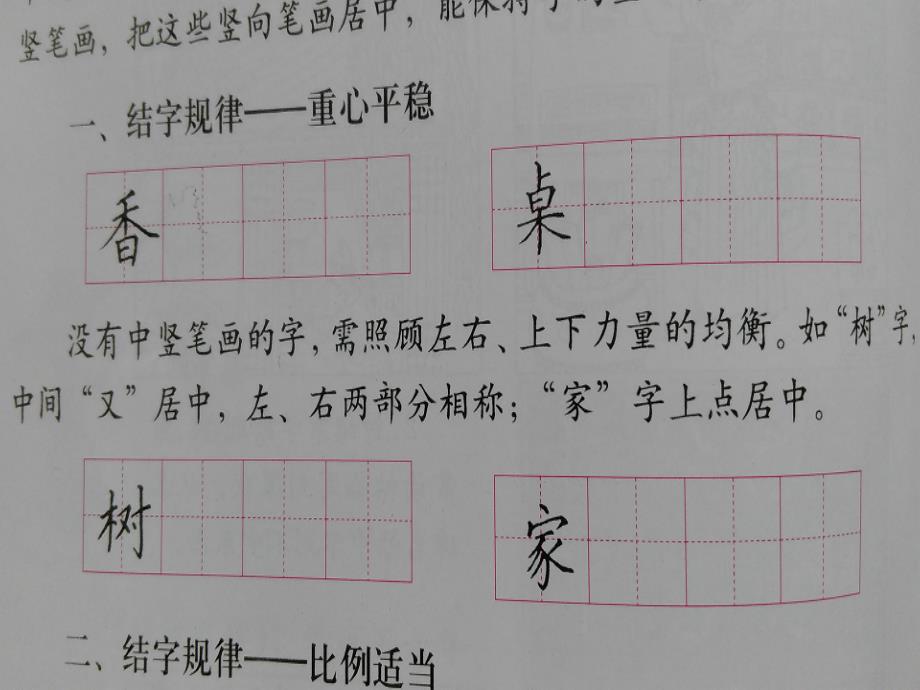 竖笔画，把这些竖向笔画居中，能保持字的
一、结字规律——重心平稳
香 桌
没有中竖笔画的字，需照顾左右、上下力量的均衡。如“树”字，
中间“又”居中，左、右两部分相称；“家”字上点居中。
树 家
二、结字规律——比例适当